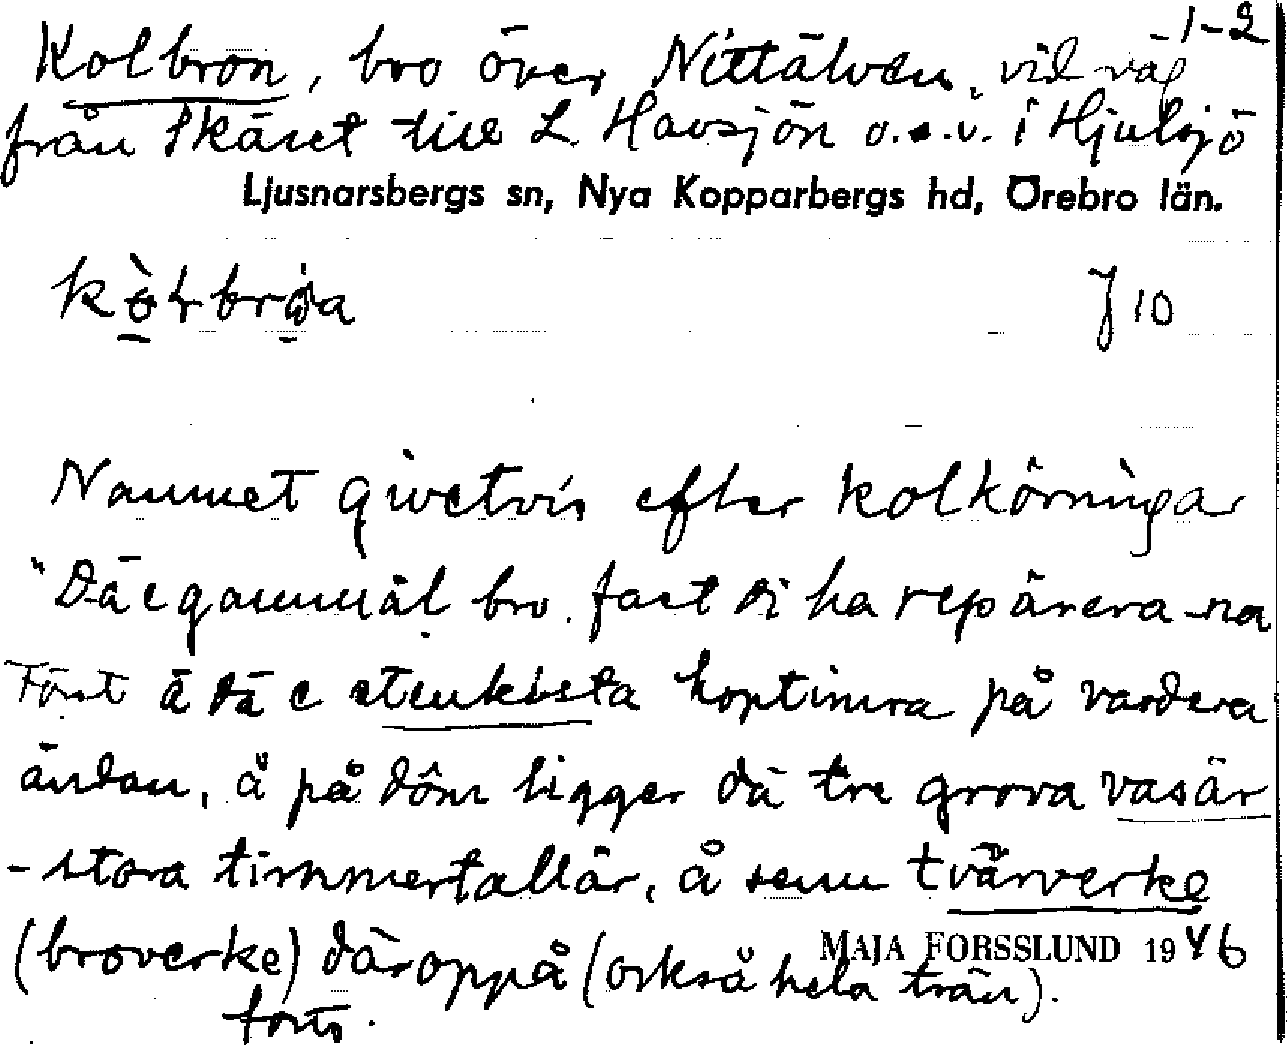 1-2
Kolbron, bro över Nittälven, vid väg
från Skäret till L. Havsjön o.s.v. i Hjulsjö
Ljusnarsbergs sn, Nya Kopparbergs hd, Örebro län.
J 10
Namnet givetvis efter kolkörningar
"Dä e gammäl bro. fast di ha reparera -na
Först ä dä e stenkista hoptimra på vardera
ändan, å på dôm ligger dä tre grova vasär
- stora timmertallär, å senn tvärverke
(broverke) däroppå (också hela trän).
MAJA FORSSLUND 1946
forts.